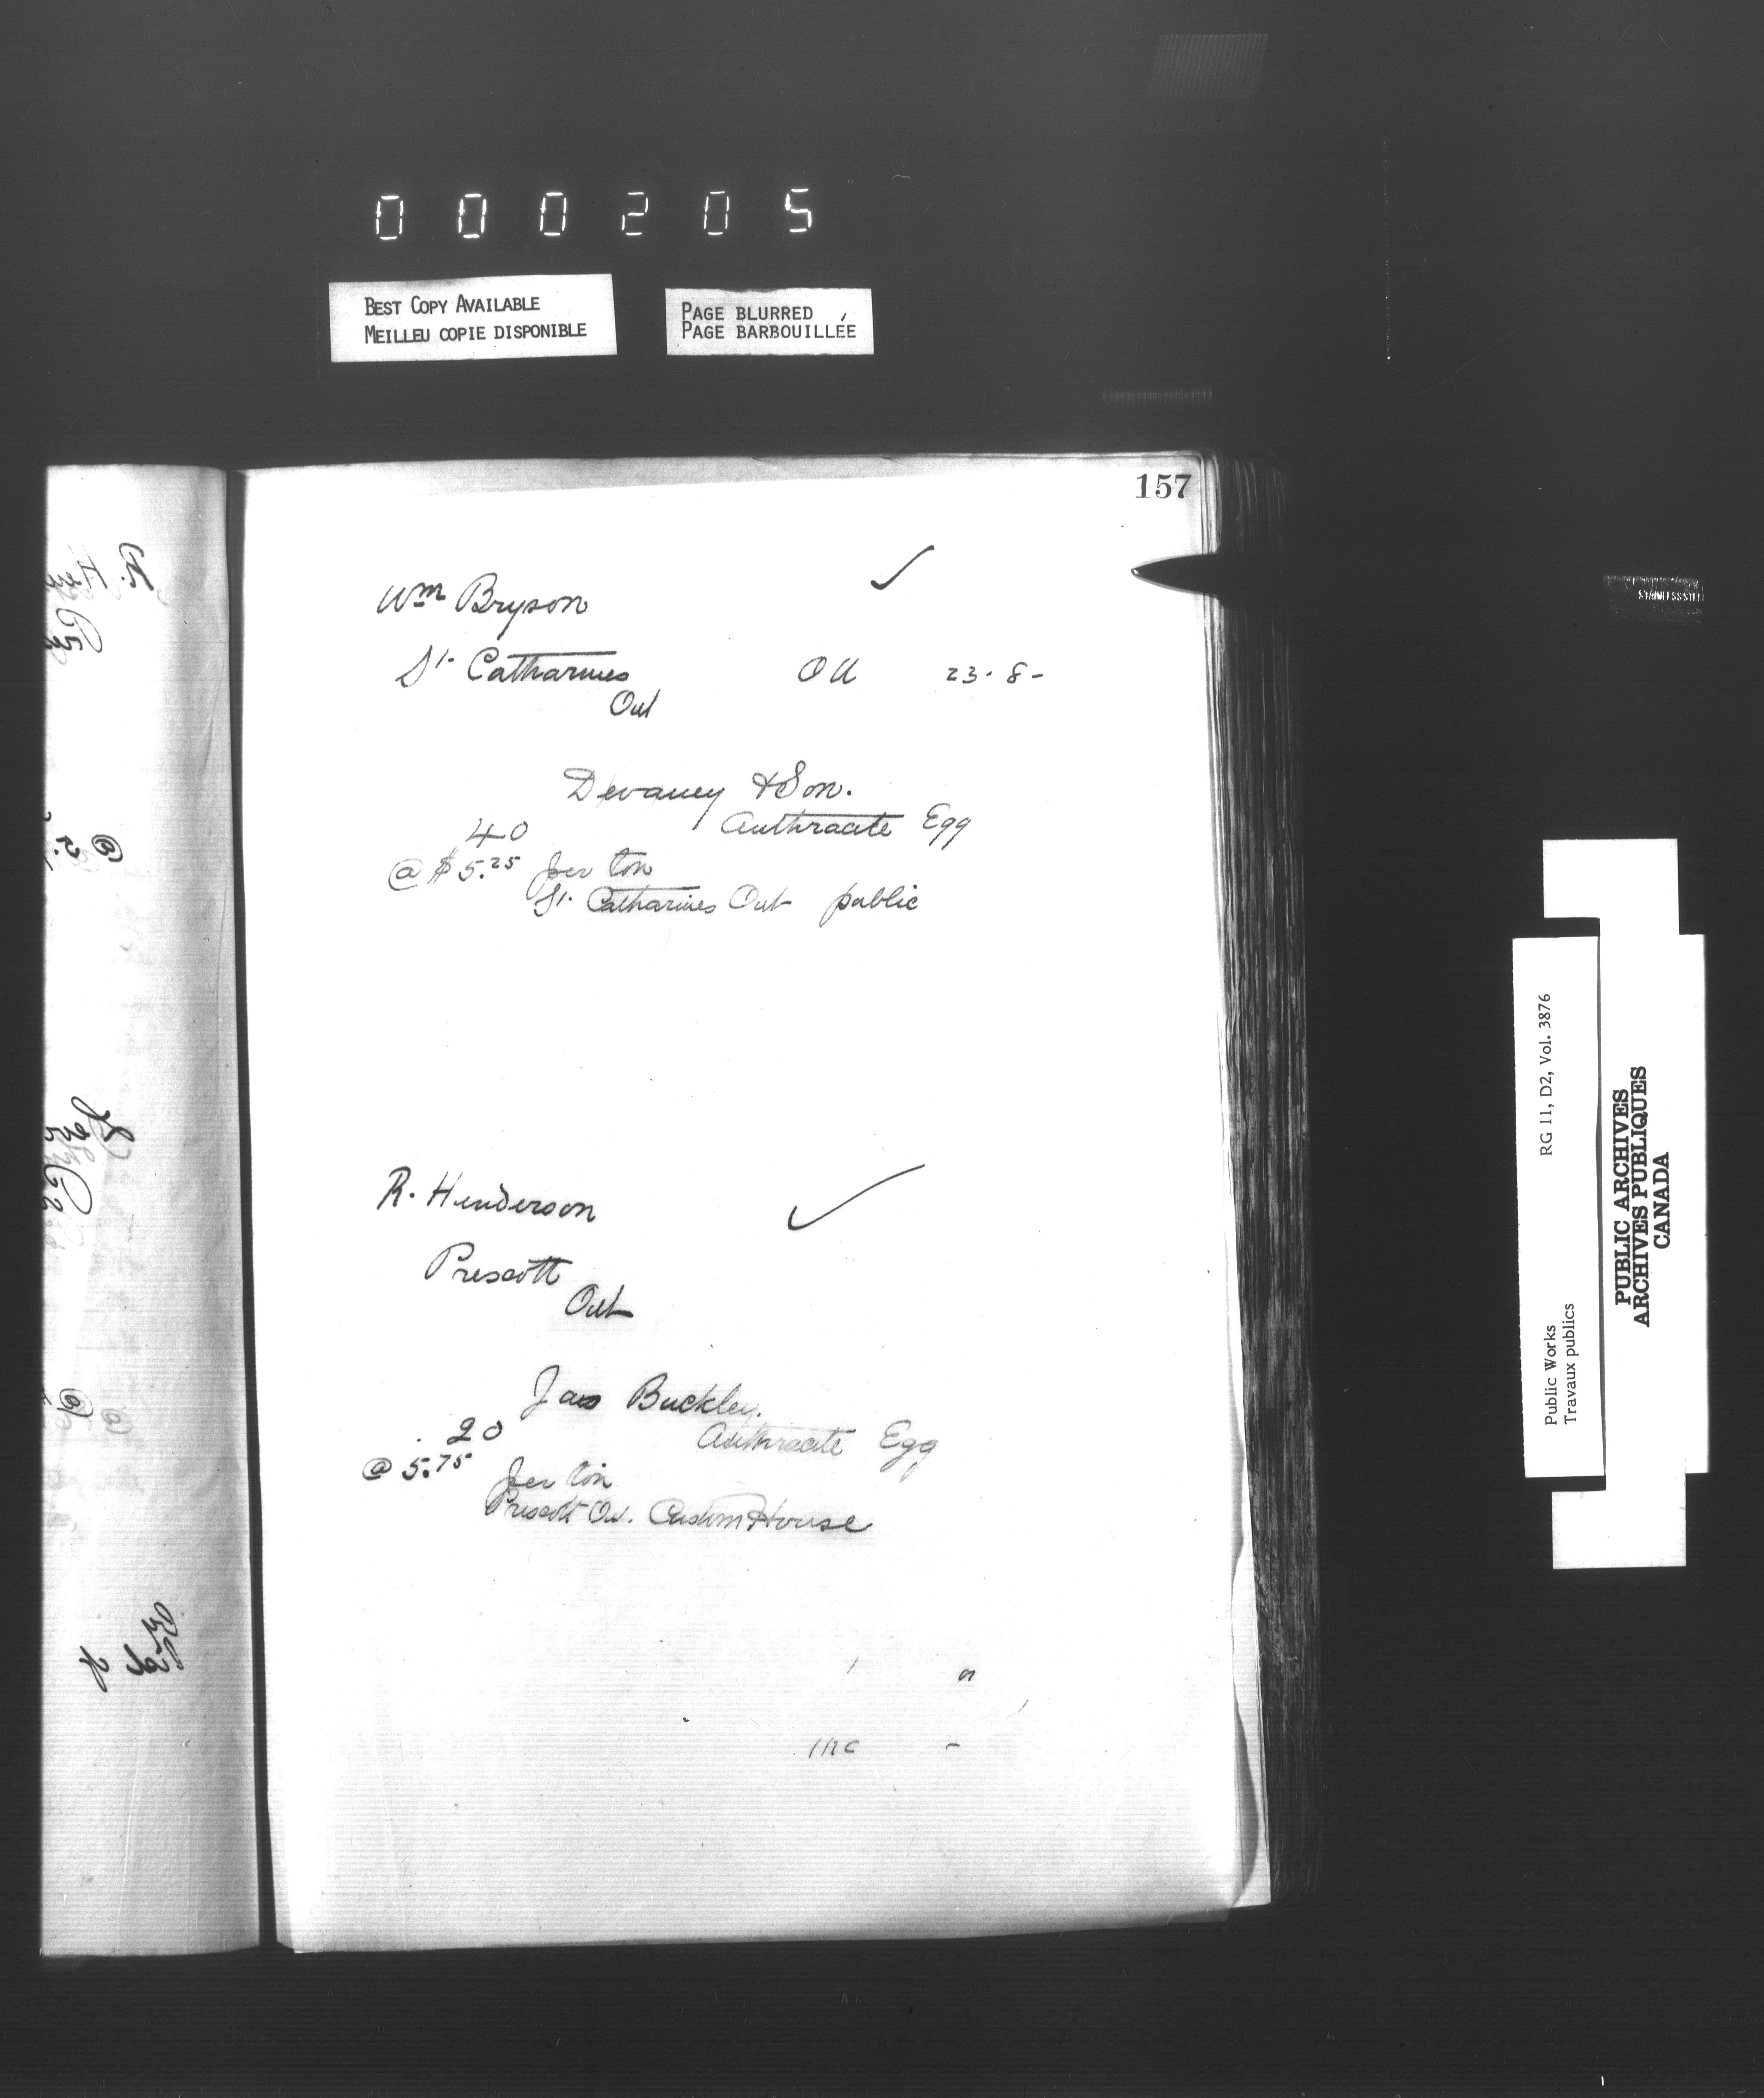 000205
BEST COPY AVAILABLE
MEILLEU COPIE DISPONIBLE
PAGE BLURRED
PAGE BARBOUILLÉE
157
Wm Bryson
St. Catharines
Ont
23.8-
Devaney & Son.
40 Anthracite Egg
@ $5.25 per ton
St. Catharines Ont public
R. Henderson
Prescott
Ont
Jas Buckley.
20 Anthracite Egg
@ 5.75 per ton
Prescott Ont. Custom House
Public Works
Travaux publics
RG 11, D2, Vol. 3876
PUBLIC ARCHIVES
ARCHIVES PUBLIQUES
CANADA